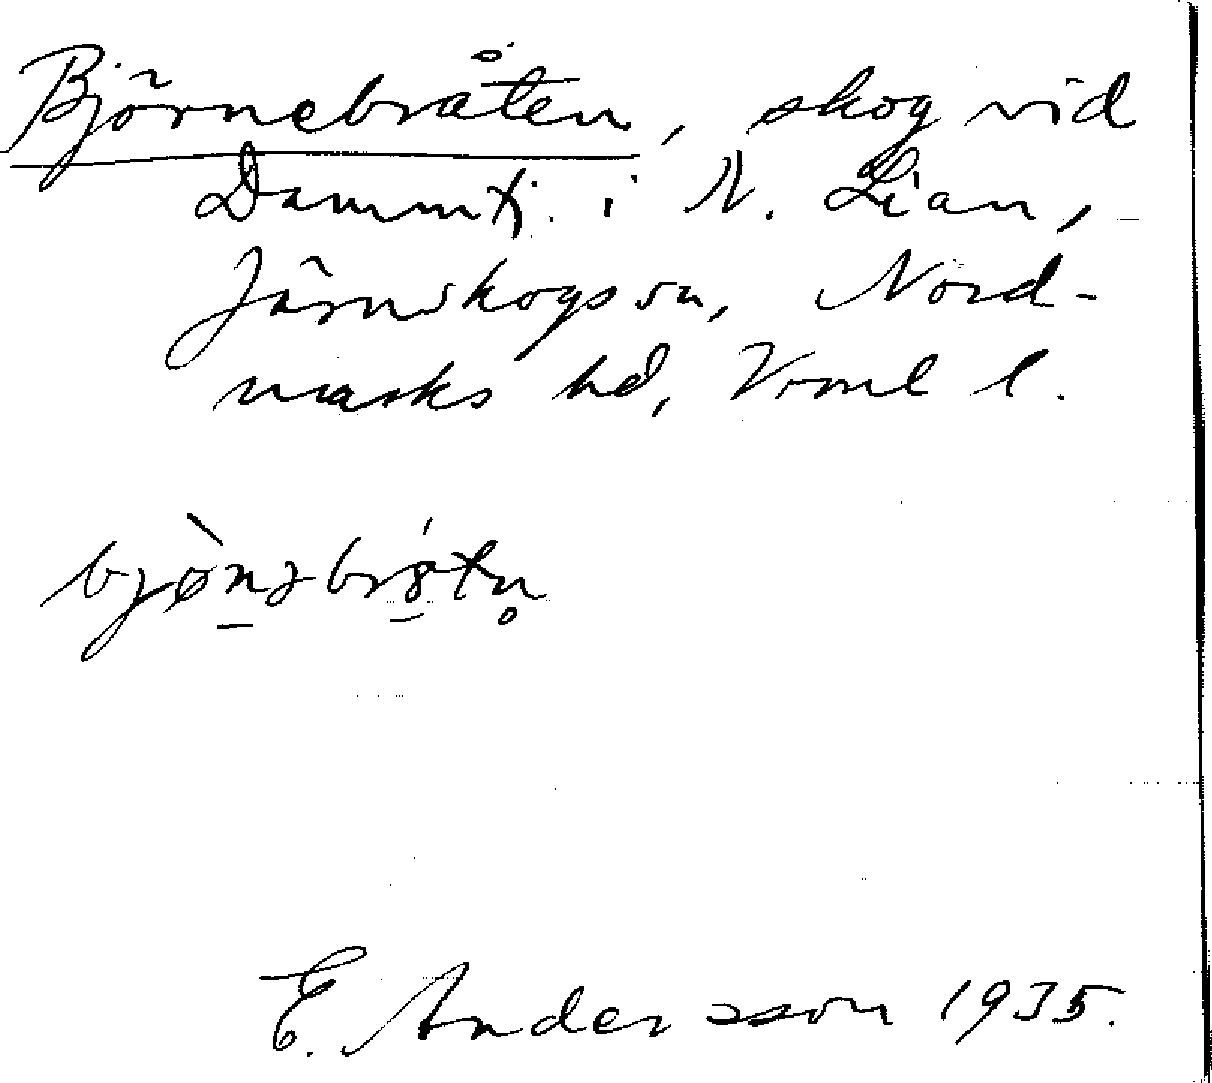 Björnebråten, skog vid
Dammtj. i N. Lian,
Järnskogs sn, Nord-
marks hd, Vrml l.
bjø̀nəbrǿtn̥
E. Andersson 1935.